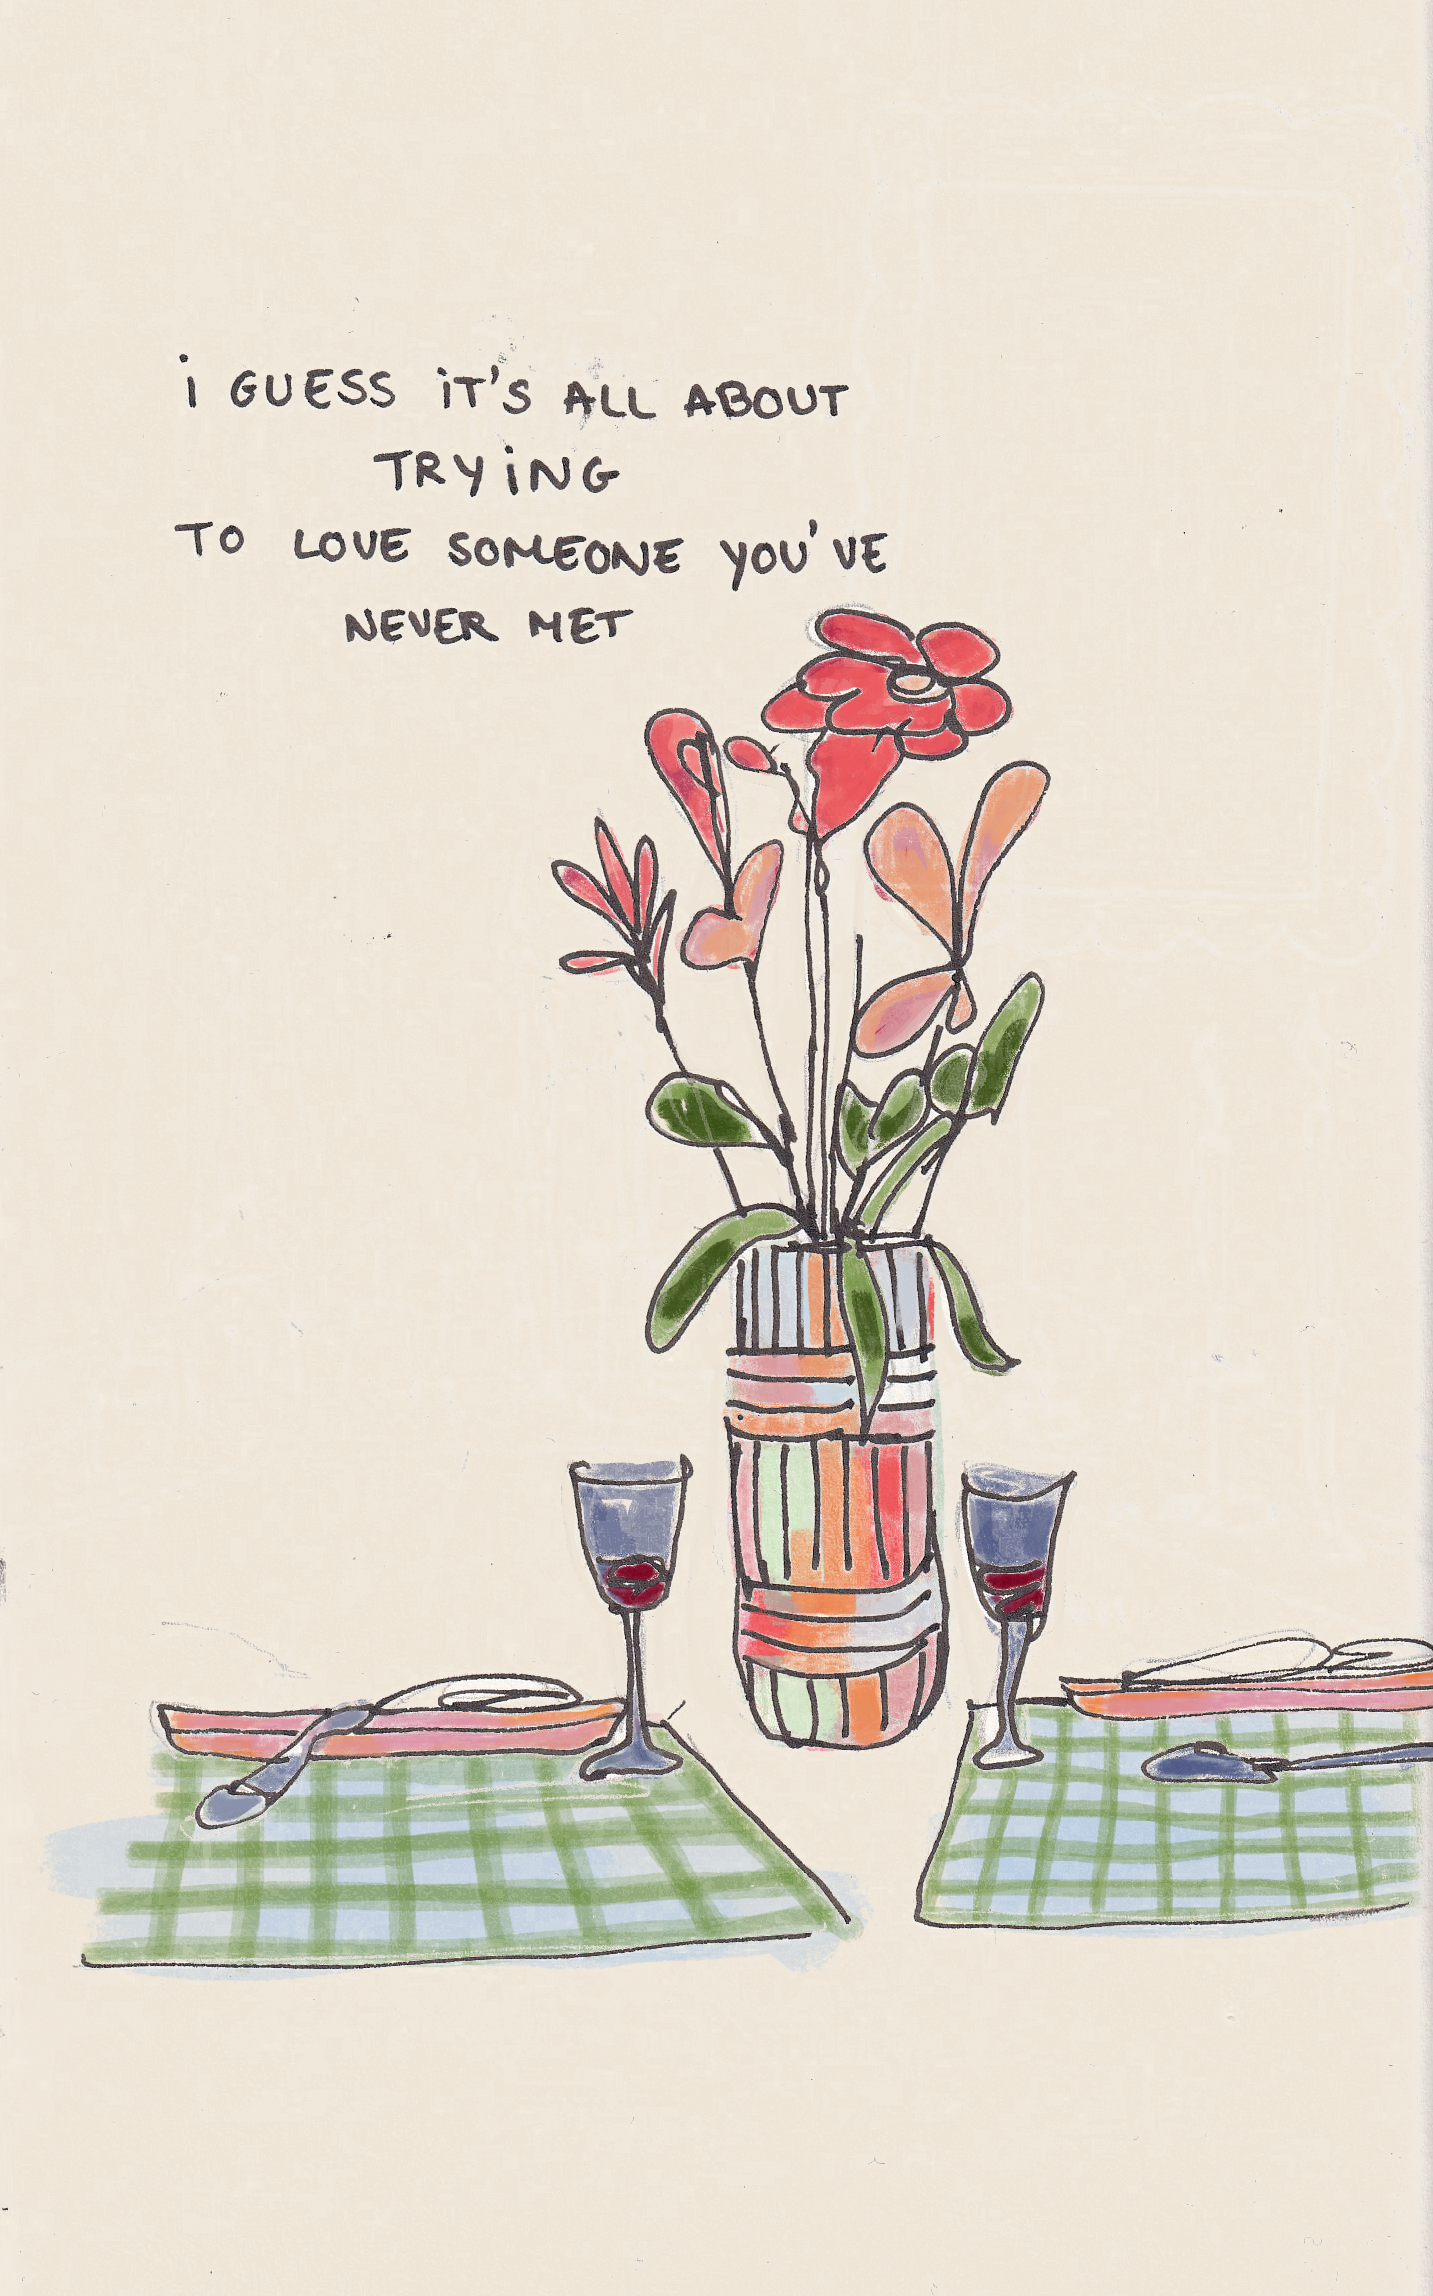 i GUESS iT'S ALL ABOUT
TRYiNG
TO LOVE SOMEONE YOU'VE
NEVER MET